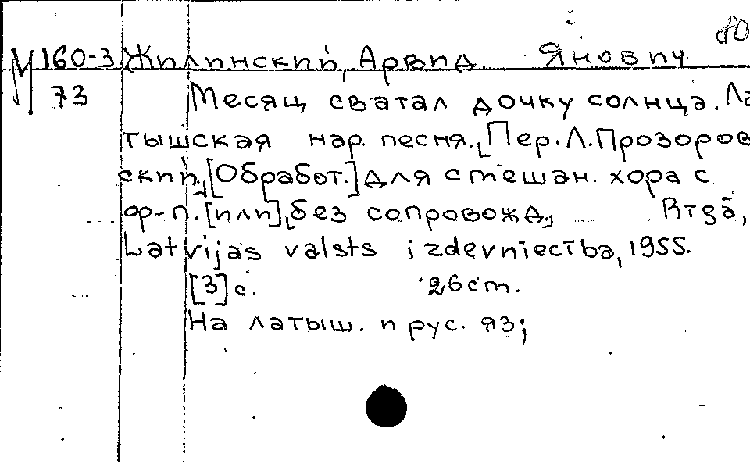 М160-3 Жилинский, Арвид Янович
73 Месяц сватал дочку солнца. Ла
тышская нар. песня. [Пер. Л. Прозоров
ский], [Обработ.] для смешан. хора с
ф-п. [или] без сопровожд., Rīgā,
Latvijas valsts izdevniecība, 1955.
[3] с. 26 cm.
На латыш. и рус. яз;